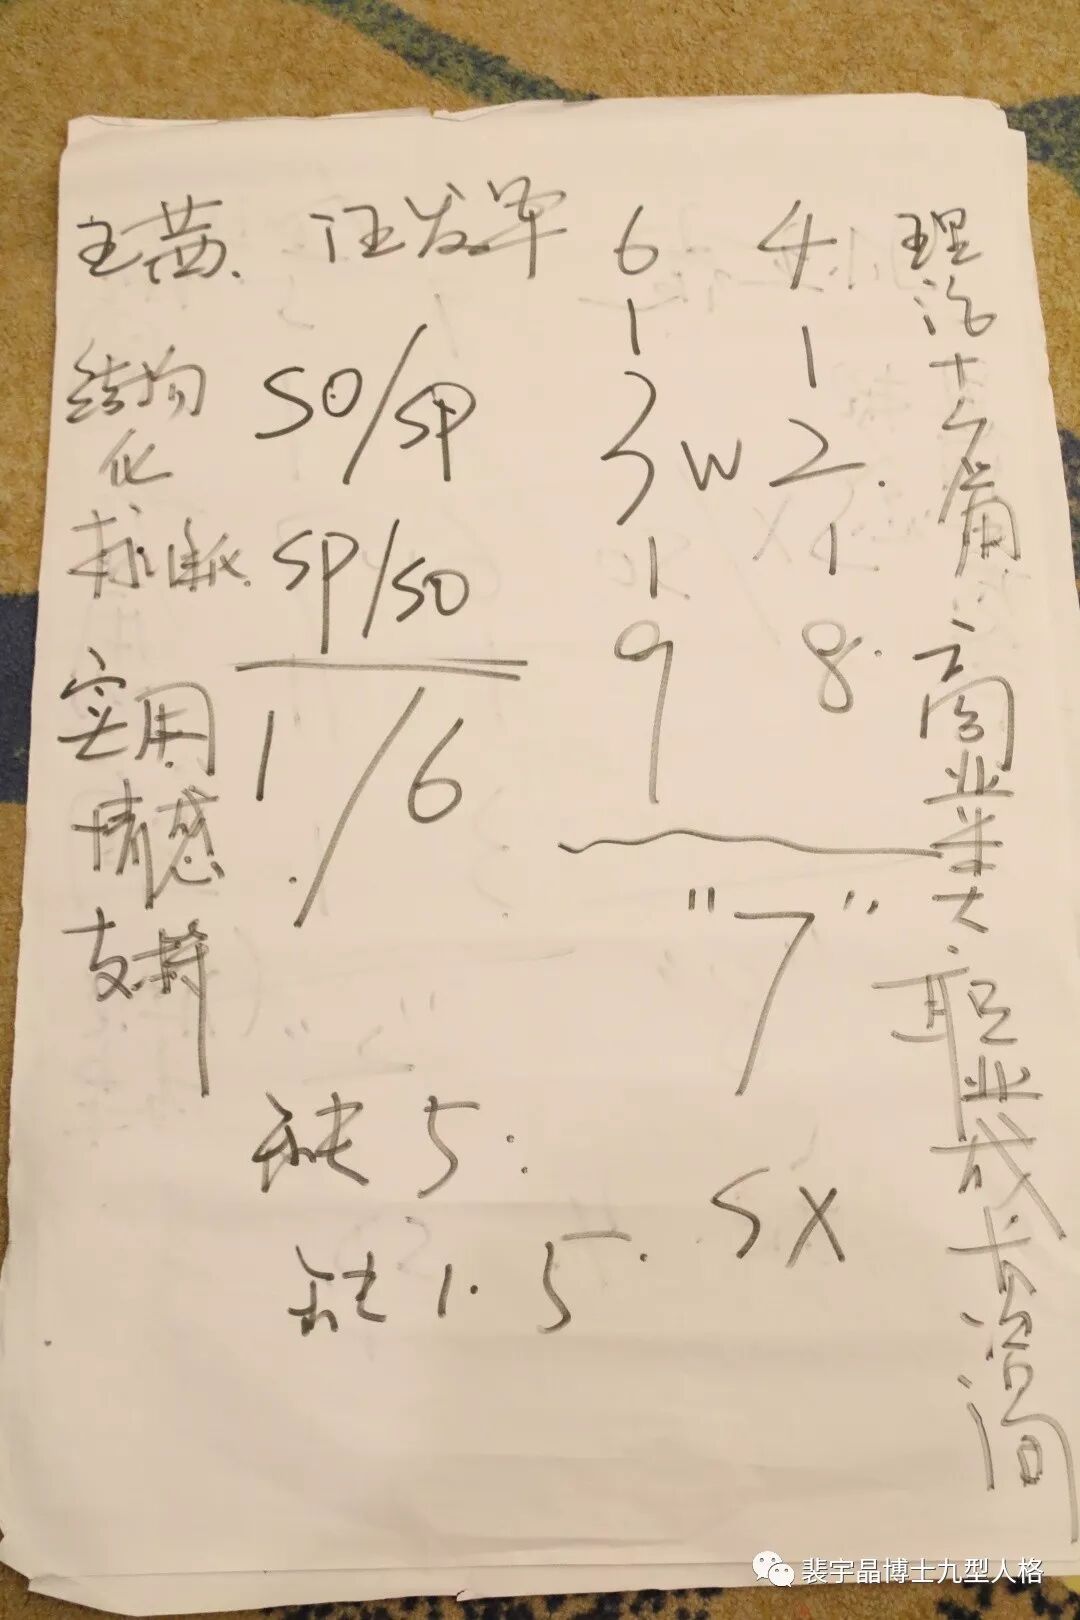 王茜. 汪发军 6 4
1 1
结构化 SO/SP
3w2.
标准 SP/SO
1 1
9 8.
实用情感支持
1/6
"7"
缺5.
缺1.5.
SX
理论+人庸
商业类.职业成长咨询
裴宇晶博士九型人格